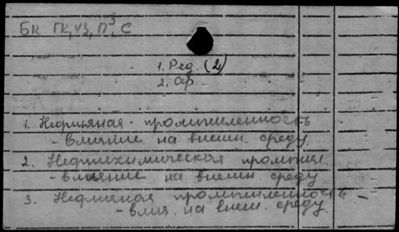 Бк ГК, УЗ, П³, С
1. Ред. (2)
2. Ср.
1. Нефтяная промышленность
- влияние на внешн. среду
2. Нефтехимическая промышл.
- влияние на внешн. среду
3. Нефтяная промышленность -
- влия. на внешн. среду.